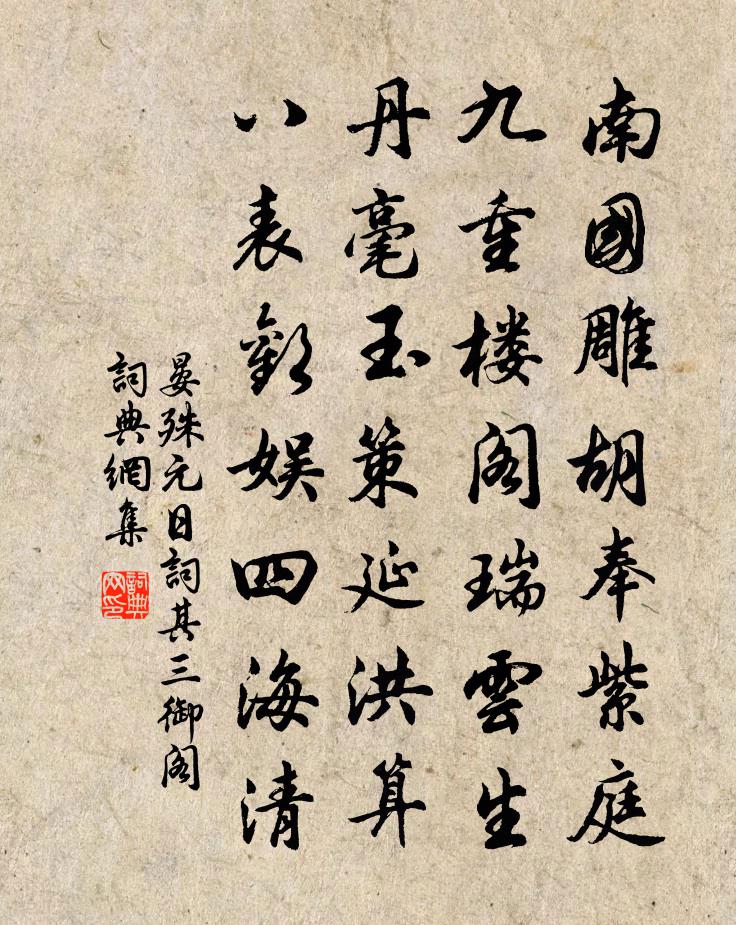 南國雕胡奉紫庭
九重楼阁瑞雲生
丹毫玉策延洪算
八表歡娱四海清
晏殊元日詞其三御阁
詞典網集
詞典網印